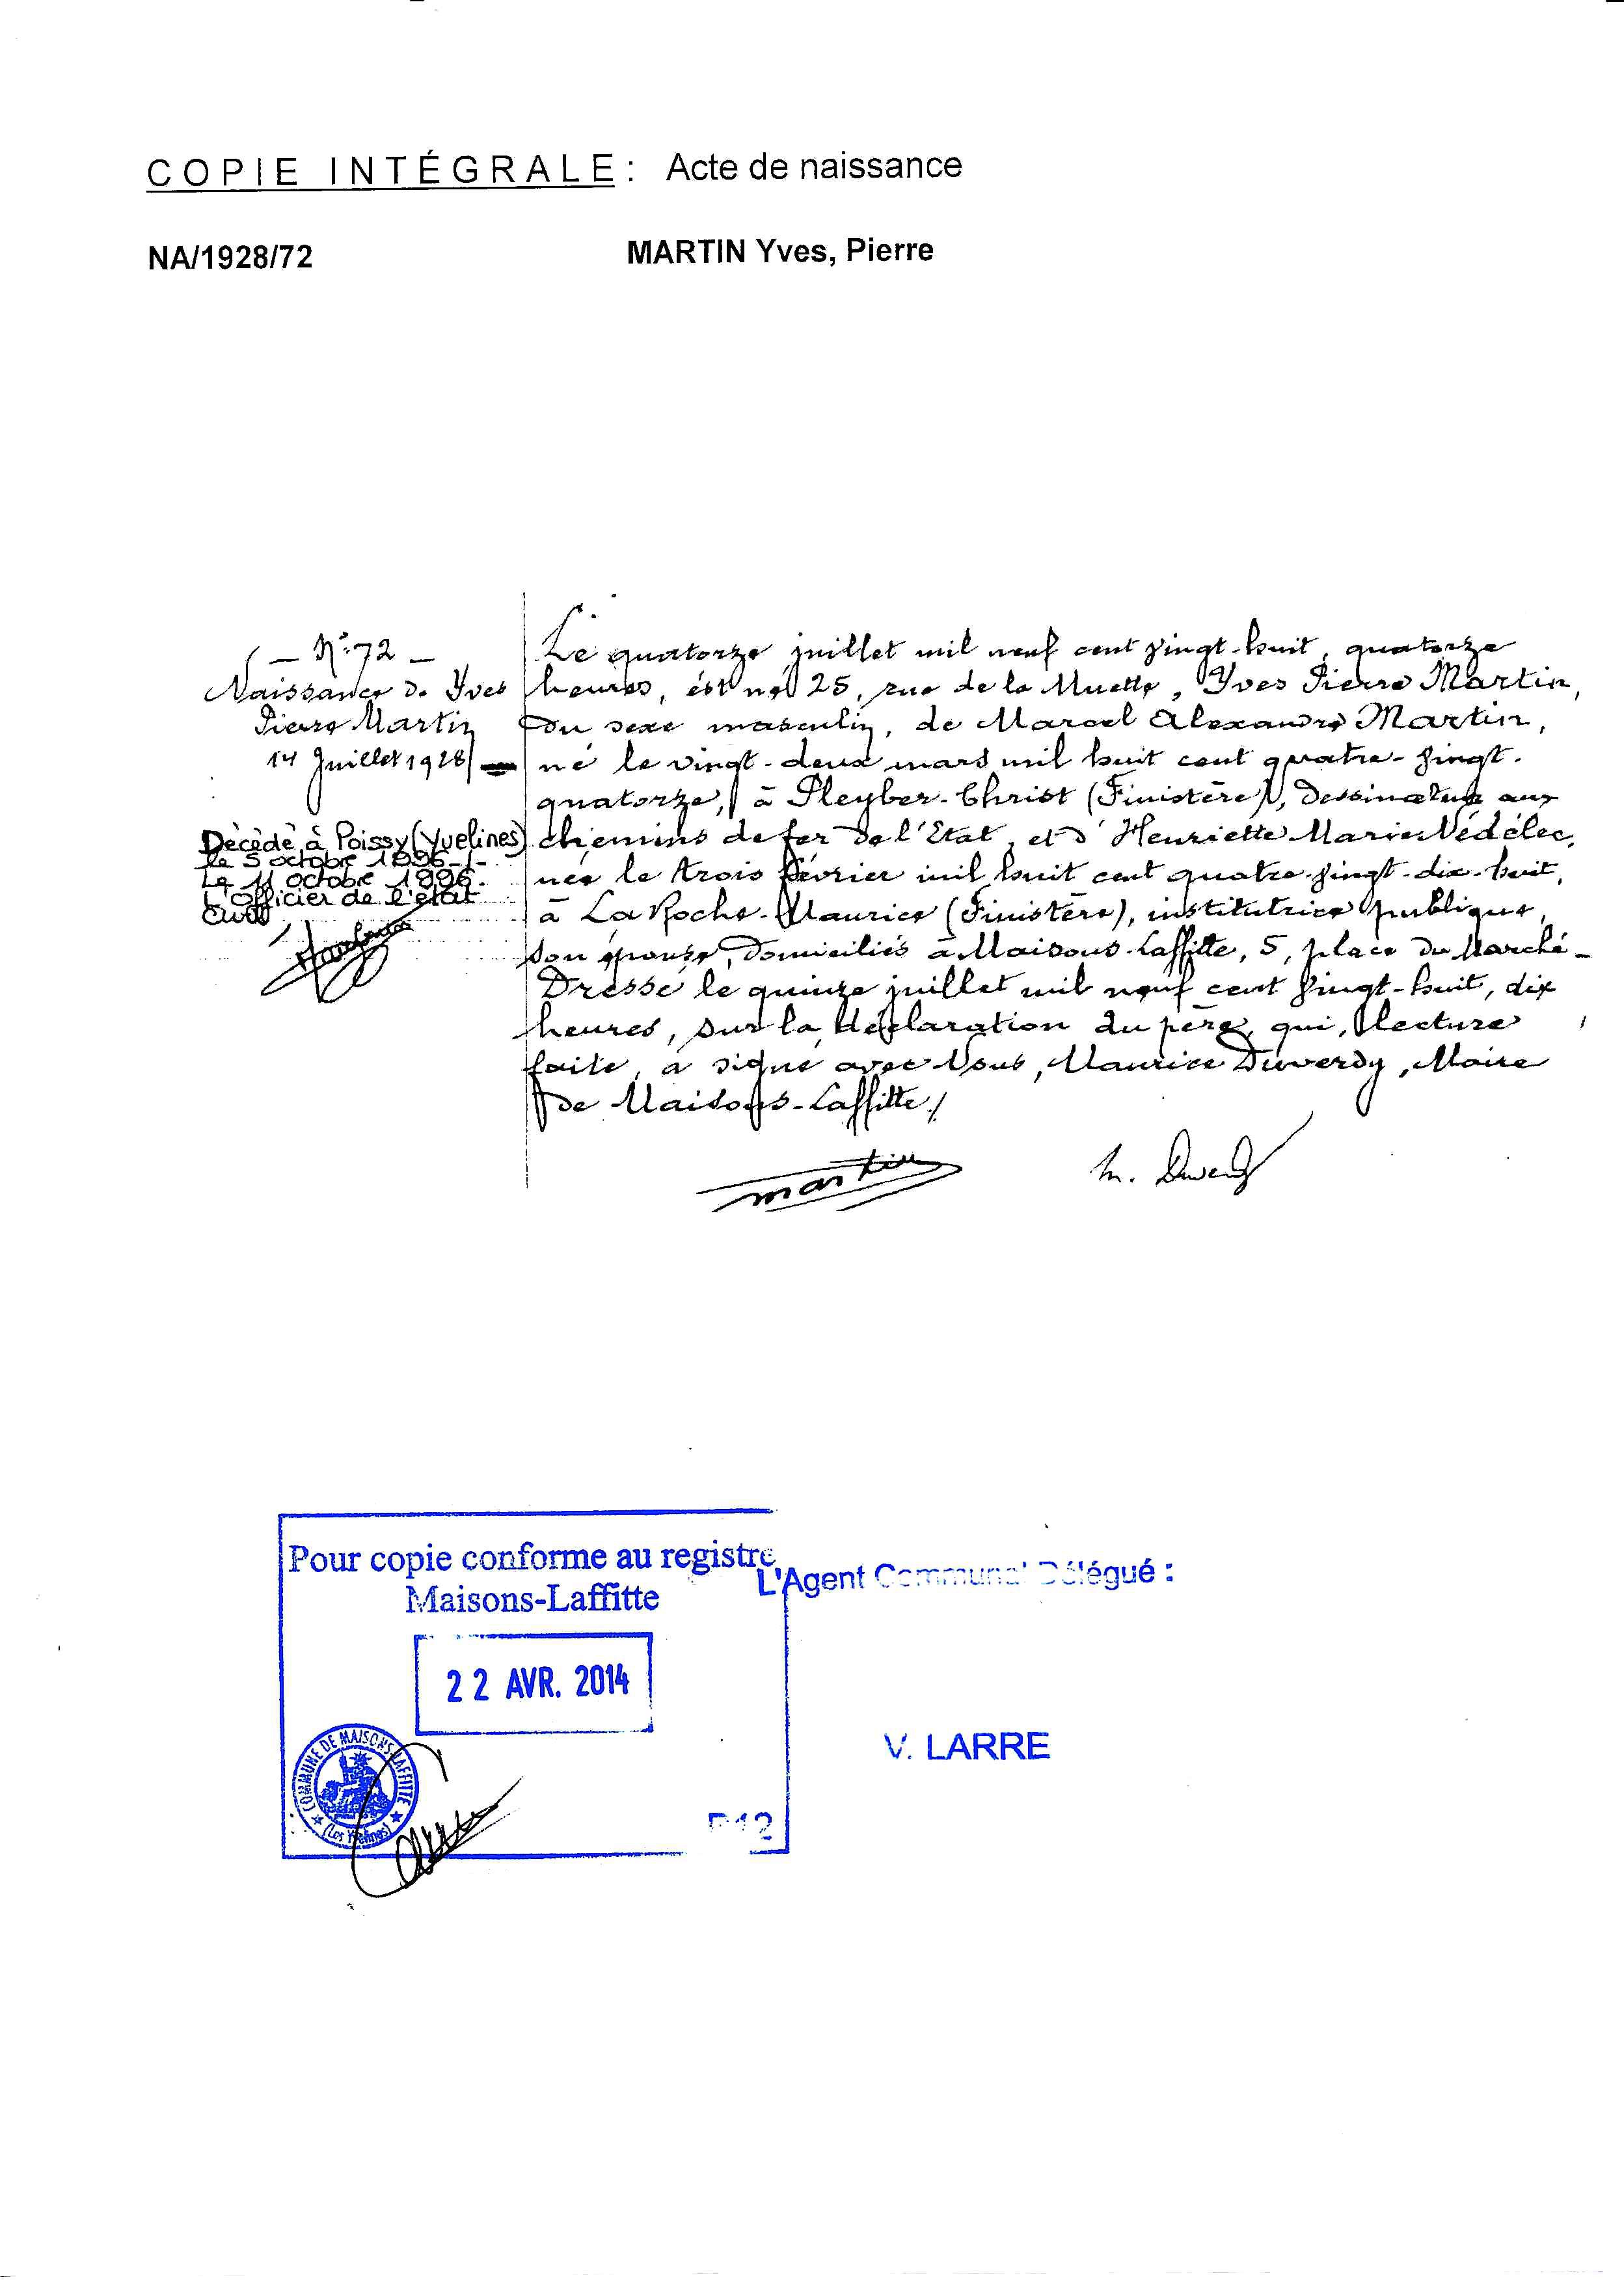 COPIE INTÉGRALE : Acte de naissance
NA/1928/72 MARTIN Yves, Pierre
— N° 72 —
Naissance de Yves
Pierre Martin
14 Juillet 1928
Décédé à Poissy (Yvelines)
le 5 octobre 1996
Le 11 octobre 1996.
L'officier de l'état
Civil
Le quatorze juillet mil neuf cent vingt-huit, quatorze
heures, est né 25, rue de la Muette, Yves Pierre Martin,
du sexe masculin, de Marcel Alexandre Martin,
né le vingt-deux mars mil huit cent quatre-vingt-
quatorze, à Pleyber-Christ (Finistère), dessinateur aux
chemins de fer de l'Etat, et d'Henriette Marie Nédélec,
née le trois février mil huit cent quatre-vingt-dix-huit,
à La Roche-Maurice (Finistère), institutrice publique,
son épouse, domiciliés à Maisons-Laffitte, 5, place du Marché –
Dressé le quinze juillet mil neuf cent vingt-huit, dix
heures, sur la déclaration du père, qui, lecture
faite, a signé avec Nous, Maurice Duverdy, Maire
de Maisons-Laffitte./
martin
M. Duverdy
Pour copie conforme au registre
Maisons-Laffitte
L'Agent Communal Délégué :
22 AVR. 2014
COMMUNE DE MAISONS-LAFFITTE
(Les Yvelines)
V. LARRE